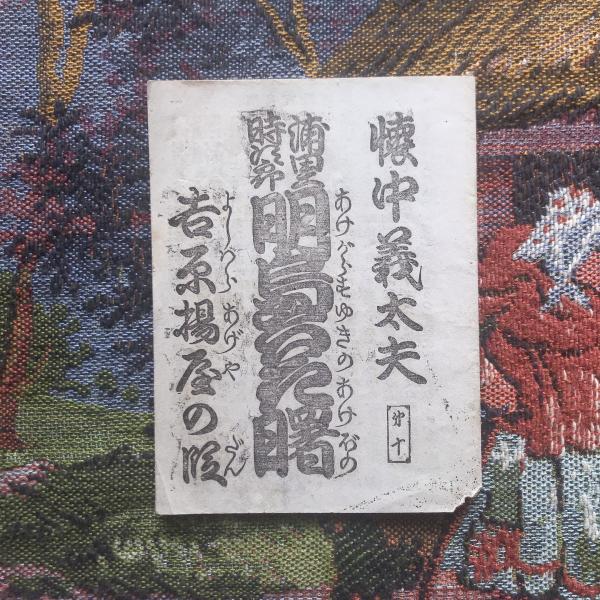 懐中義太夫
第十
浦里
時次郎
明烏雪の曙
あけがらすゆきのあけぼの
吉原揚屋の段
よしハらあげやだん